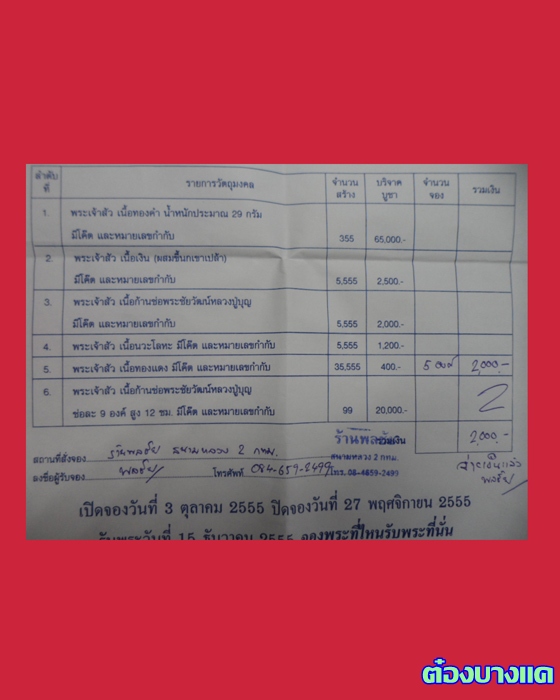 ลำดับ ที่ รายการวัตถุมงคล จำนวน สร้าง บริจาค บูชา จำนวน จอง รวมเงิน
1. พระเจ้าสัว เนื้อทองคำ น้ำหนักประมาณ 29 กรัม
มีโค๊ด และหมายเลขกำกับ 355 65,000.-
2. พระเจ้าสัว เนื้อเงิน (ผสมขี้นกเขาเปล้า)
มีโค๊ด และหมายเลขกำกับ 5,555 2,500.-
3. พระเจ้าสัว เนื้อก้านช่อพระชัยวัฒน์หลวงปู่บุญ
มีโค๊ด และหมายเลขกำกับ 5,555 2,000.-
4. พระเจ้าสัว เนื้อนวะโลหะ มีโค๊ด และหมายเลขกำกับ 5,555 1,200.-
5. พระเจ้าสัว เนื้อทองแดง มีโค๊ด และหมายเลขกำกับ 35,555 400.- 5 องค์ 2,000.-
6. พระเจ้าสัว เนื้อก้านช่อพระชัยวัฒน์หลวงปู่บุญ 2
ช่อละ 9 องค์ สูง 12 ซม. มีโค๊ด และหมายเลขกำกับ 99 20,000.-
ร้านพลชัย รวมเงิน 2,000.-
สถานที่สั่งจอง ร้านพลชัย สนามหลวง 2 กทม. สนามหลวง 2 กทม.
ลงชื่อผู้รับจอง พลชัย โทรศัพท์ 084-659-2499 โทร. 08-4659-2499
จ่ายเงินแล้ว
พลชัย
เปิดจองวันที่ 3 ตุลาคม 2555 ปิดจองวันที่ 27 พฤศจิกายน 2555
รับพระวันที่ 15 ธันวาคม 2555 จองพระที่ไหนรับพระที่นั่น
ต๋องบางแค